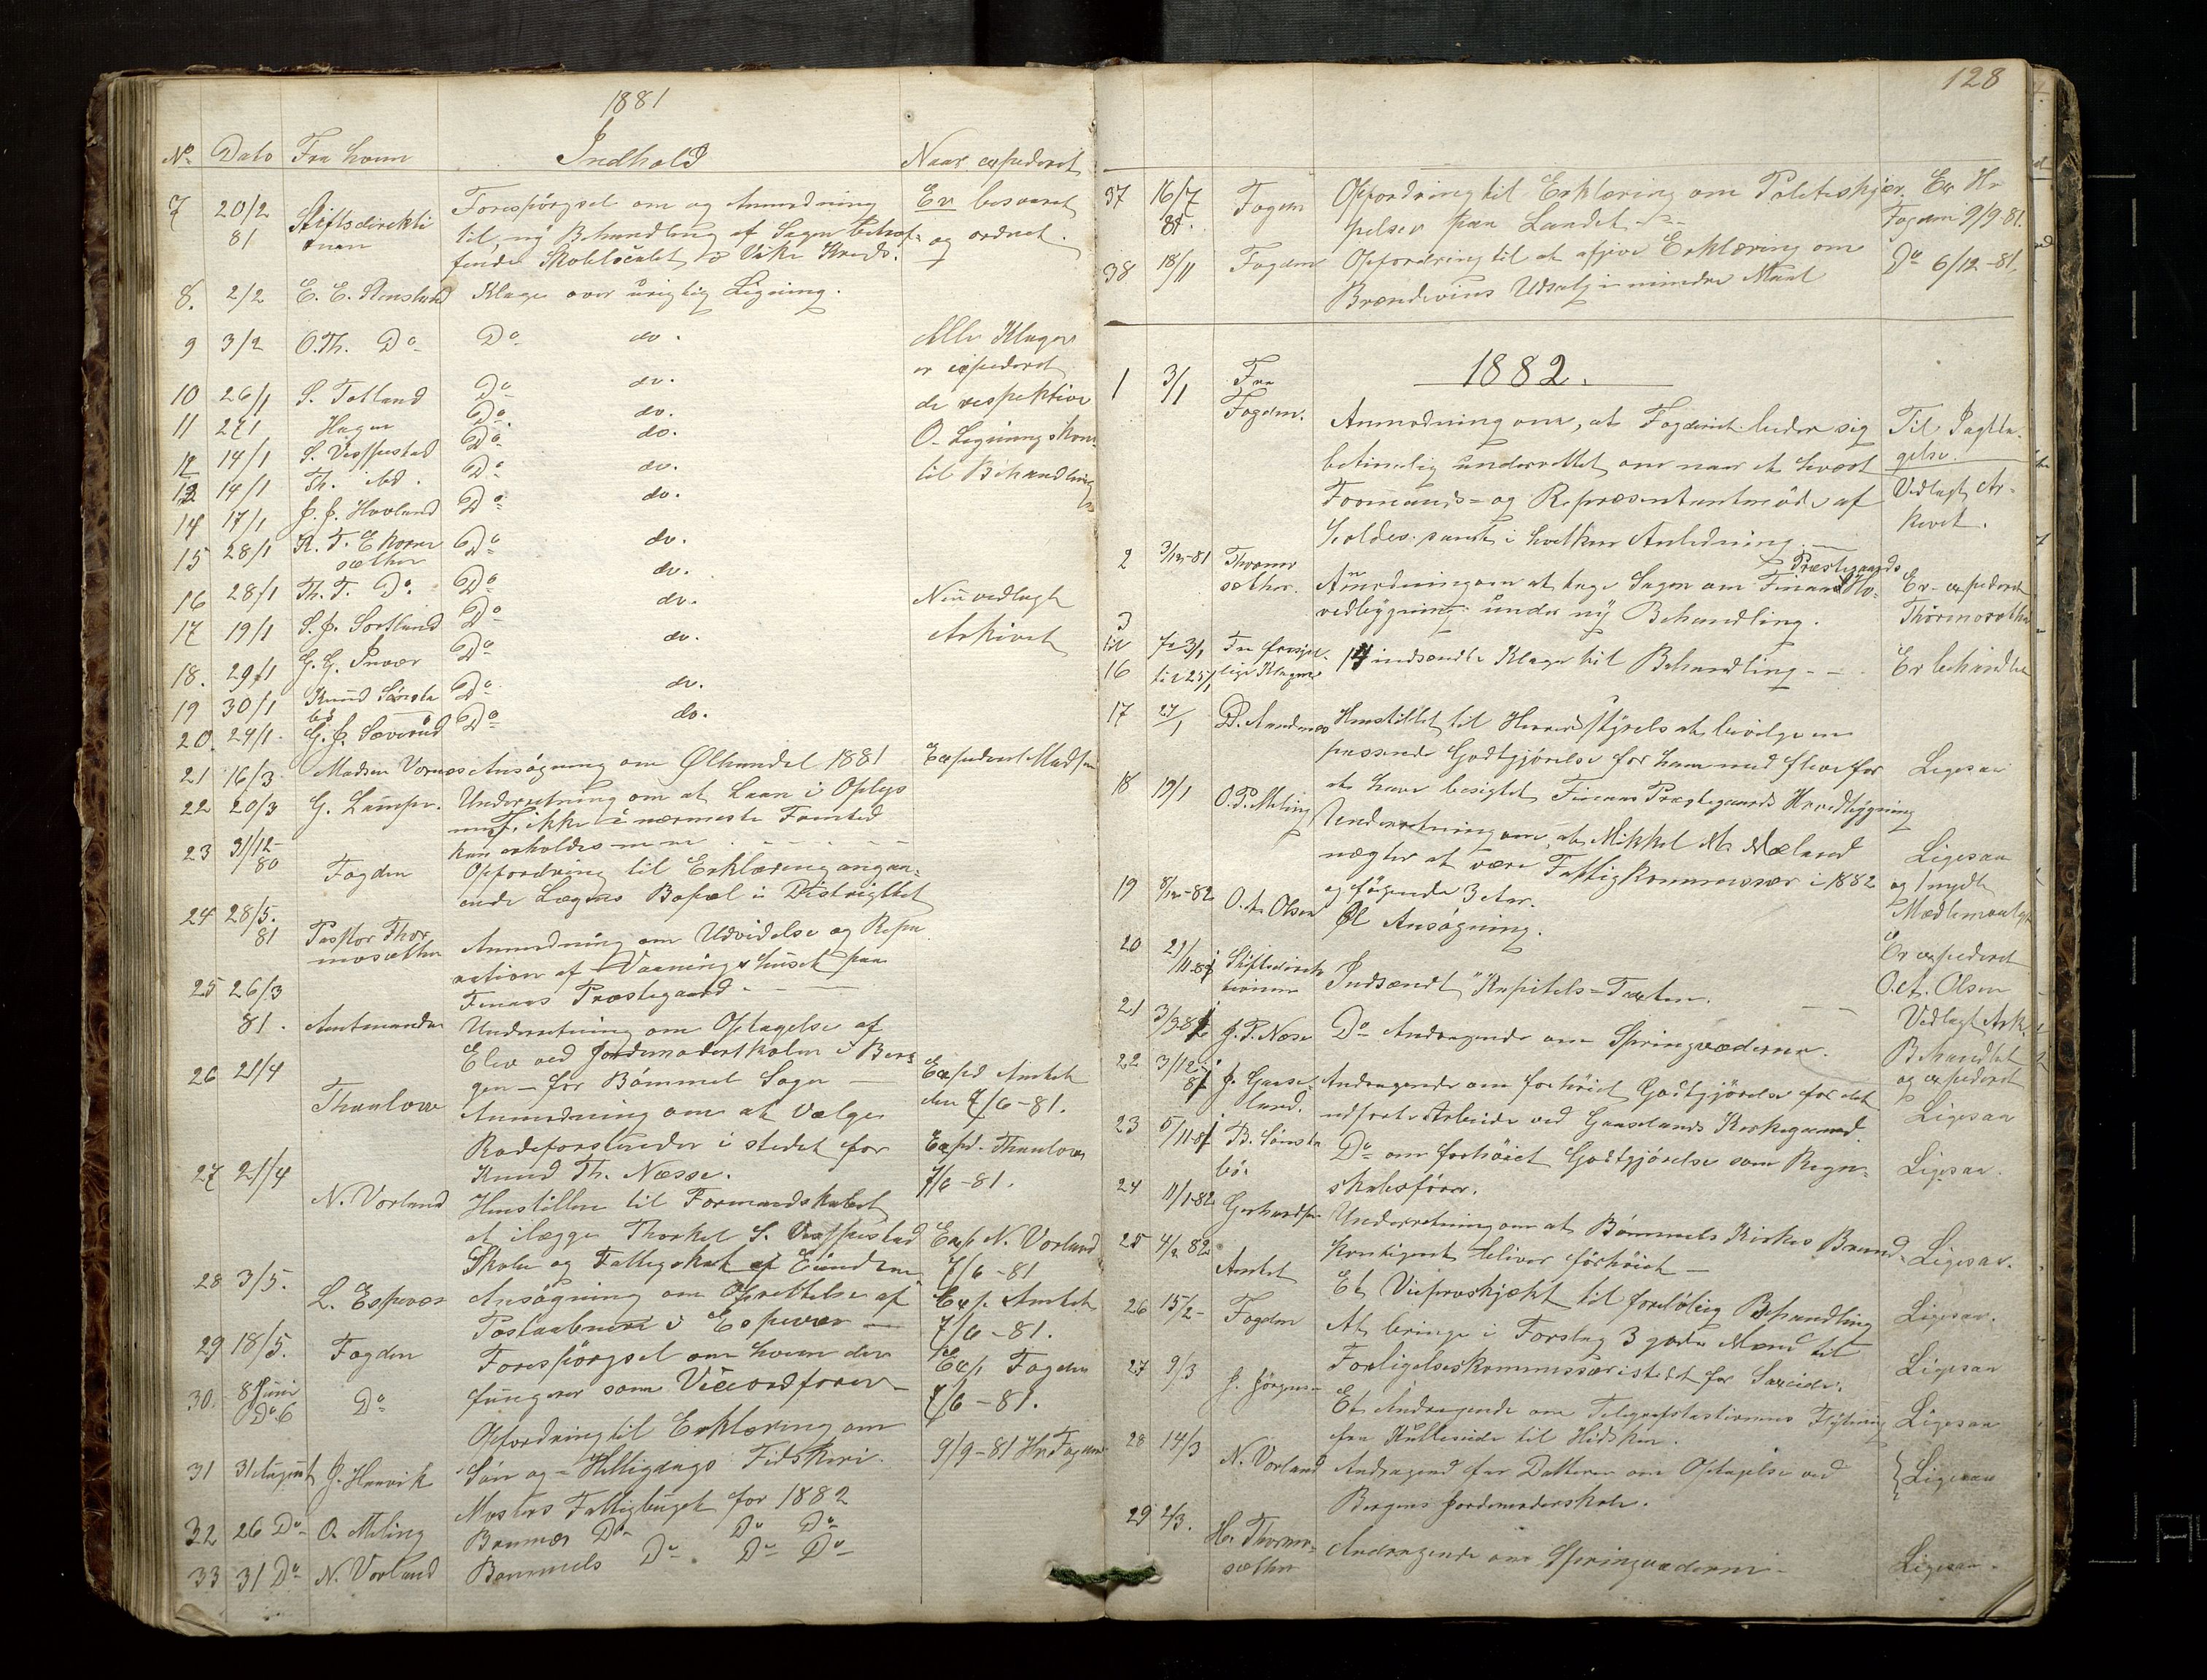 1881
No Dato Fra hvem Indhold Naar expederet
7 20/2 81 Stiftsdirekti Forespörgsel om og Anmodning Er besvaret
onen til ny Behandling af Sagen betræf- og ordnet.
fende Skolelocalet i Vike Kreds.
8. 2/2 E. E. Klage over urigtig Ligning.
9 3/2 O. Th. Do Do do. Alle Klager
er expederet
10 26/1 S. Totland Do do. de respektive
11 27/1 Hagen Do do. O. Ligningskom.
12 14/1 S. Vespestad Do do. til Behandling
13 14/1 Th. ibd. Do do.
14 17/1 J. J. Hovland Do do.
15 28/1 K. T. Ekorn Do do.
sæther
16 28/1 Th. T. Do Do do.
17 19/1 S. J. Sortland Do do. Nu vedlagt
18. 29/1 G. G. Do do. Arkivet
19 30/1 Knud Sönste Do do.
bö
20. 24/1 G. J. Sæveråd Do do.
21 16/3 Madsen Vornes Ansögning om Ølhandel 1881 Expederet Madsen
22 20/3 G. Underretning om at Laan i Oplys
ikke i nærmeste Fremtid
kan erholdes
23 31/12 80 Fogden Opfordring til Erklæring angaa-
ende Lægens Bopæl i Distrigtet
24 28/5. 81 Pastor Thor Anmodning om Udvidelse og Repa
mosæther ration af Vaaningshuset paa
Finaas Præstegaard.
25 26/3 81. Amtmanden Underretning om Optagelse af
Elev ved Jordemoderskolen i Ber
gen - for Bömmel Sogn - Exped Amtet
26 21/4 Thaulow Anmodning om at vælge den 7/6-81.
Rodeforstander i stedet for Exped. Thaulow
Knud Th. Næsse. 7/6-81.
27 21/4 N. Vorland Henstillen til Formandskabet
at ilægge Thorkel S. Vespestad Exp N. Vorland
Skole og Fattigskat af 7/6-81
28 3/5. L. Espevær Ansögning om Oprettelse af Exp. Amtet
Postaabneri i Espevær - 7/6-81.
29 18/5. Fogden Forespörgsel om hvem der Exp. Fogden
fungerer som Viceordförer 7/6-81.
30. 8 Juni Do Opfordring til Erklæring om
Do 6 Sön og Helligdags Fidskeri. 9/9-81 Hr Fogden
31 31 August J. Haavik Mosters Fattigbuget for 1882
32 26 Do O. Meling Bremnæs Do Do Do
33 31 Do N. Vorland Bömmels Do Do Do
128
37 16/7 81. Fogden Opfordring til Erklæring om Politiskjær Ex Hr
pelser paa Landet Fogden 9/9-81.
38 18/11 Fogden Opfordring til at afgive Erklæring om Do 6/12-81
Brændevins Udsalg i mindre Maal
1882.
1 3/1 Fra
Fogden. Anmodning om, at Fogderiet bliver sig Til Iagtta-
betimelig underrettet om naar et hvert gelse.
Formands= og Repræsentantmöde af Vedlagt Ar-
holdes samt i hvilken Anledning. kivet.
Præstegaards
2 3/12-81 Thormo Anmodning om at tage Sagen om Finaas Ho- Er expederet
sæther. vedbygning under ny Behandling. Thormosæther
3
til 7/1 3/1 Fra forskjel 14 indsendte Klager til Behandling - - Er behandlet
16 til 25/1 lige Klagere
17 27/1 D. Aandenes Henstillet til Herredstyrelse at bevilge en
passende Godtgjörelse for ham med flere for Ligesaa
at have besigtet Finaas Præstegaards Hovedbygning
18 19/1 O. P. Meling Underretning om, at Mikkel M. Mæland
nægter at være Fattigkommissær i 1882 Ligesaa
og fölgende 3 Aar. og 1 nydt
19 8/12-82 O. A. Olsen Øl Ansögning.
20 21/11-81 Stiftsdirek Er expederet
tionen Indsendt "Kapitels=Taxten. O. A. Olsen
21 3/9 81 J. P. Næse Do Andragende om Springvæderne. Vedlagt Ark.
22 3/12 81 J. Gaase- Andragende om forhöiet Godtgjörelse for det Behandlet
land. udförte Arbeide ved Gaaselands Kirkegaard. og expederet
23 5/11-81 B. Sönste Do om forhöiet Godtgjörelse som Regn- Ligesaa
bö. skabsförer. Ligesaa.
24 11/1-82 Gerhardsen Underretning om at Bömmels Kirkes Brand
kontigent bliver forhöiet - Ligesaa.
25 4/2 82 Amtet Et til forelöbig Behandling
26 15/2- Fogden At bringe i Forslag 3 gode Mænd til Ligesaa.
Forligelseskommissær istedet for
27 9/3 J. Jörgen- Et Andragende om Telegrafstationens Flytning Ligesaa
fra til Hidsken. Ligesaa
28 14/3 N. Vorland Andragend for Datteren om Optagelse ved Ligesaa
Bergens Jordemoderskole.
29 2/3. Hr. Thormo-
sæther Andragende om Springvæderne - Ligesaa.